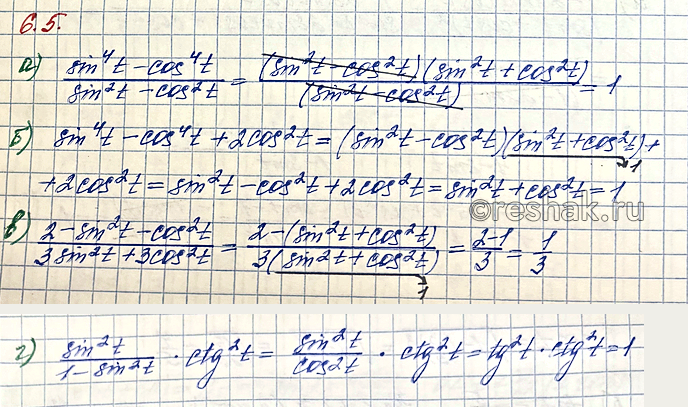 6.5.
а) (sin⁴t − cos⁴t)/(sin²t − cos²t) = ((sin²t − cos²t)(sin²t + cos²t))/((sin²t − cos²t)) = 1
б) sin⁴t − cos⁴t + 2cos²t = (sin²t − cos²t)(sin²t + cos²t) +
→1
+ 2cos²t = sin²t − cos²t + 2cos²t = sin²t + cos²t = 1
©reshak.ru
в) (2 − sin²t − cos²t)/(3sin²t + 3cos²t) = (2 − (sin²t + cos²t))/(3(sin²t + cos²t)) = (2−1)/3 = 1/3
→1
г) (sin²t)/(1 − sin²t) · ctg²t = (sin²t)/(cos²t) · ctg²t = tg²t · ctg²t = 1